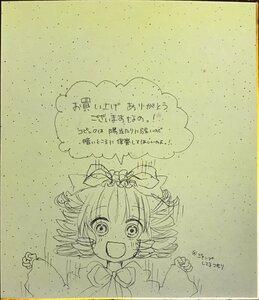 お買い上げ ありがとう
ございますなの。!!
コピックは 陽当たりに弱いので
暗いところに 保管してほしいのよ。!